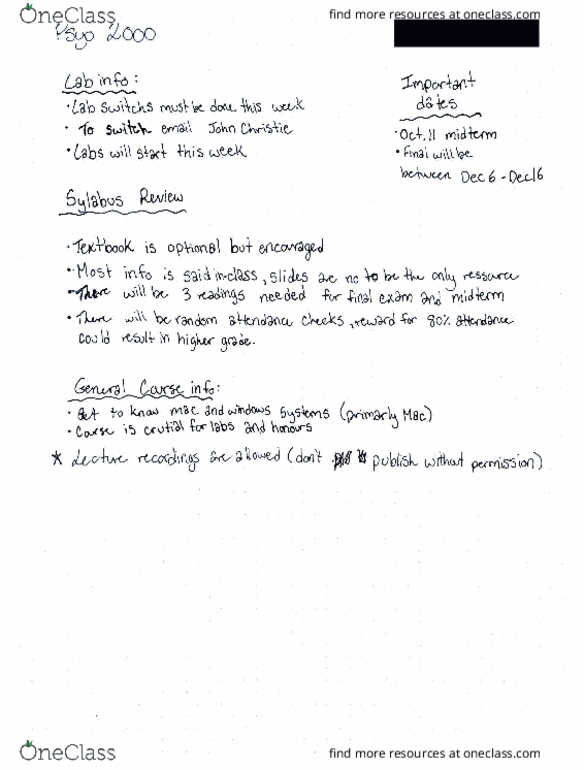 OneClass
find more resources at oneclass.com
Psyo 2000
Lab info:
• Lab switchs must be done this week
• To switch email John Christie
• Labs will start this week
Important
dates
• Oct. 11 midterm
• Final will be
between Dec 6 - Dec 16
Syllabus Review
• Textbook is optional but encouraged
• Most info is said in-class, slides are no to be the only ressource
• There will be 3 readings needed for final exam and midterm
• There will be random attendance checks, reward for 80% attendance
could result in higher grade.
General Course info:
• Get to know mac and windows systems (primarly Mac)
• Course is crutial for labs and honours
* Lecture recordings are allowed (don't publish without permission)
OneClass
find more resources at oneclass.com